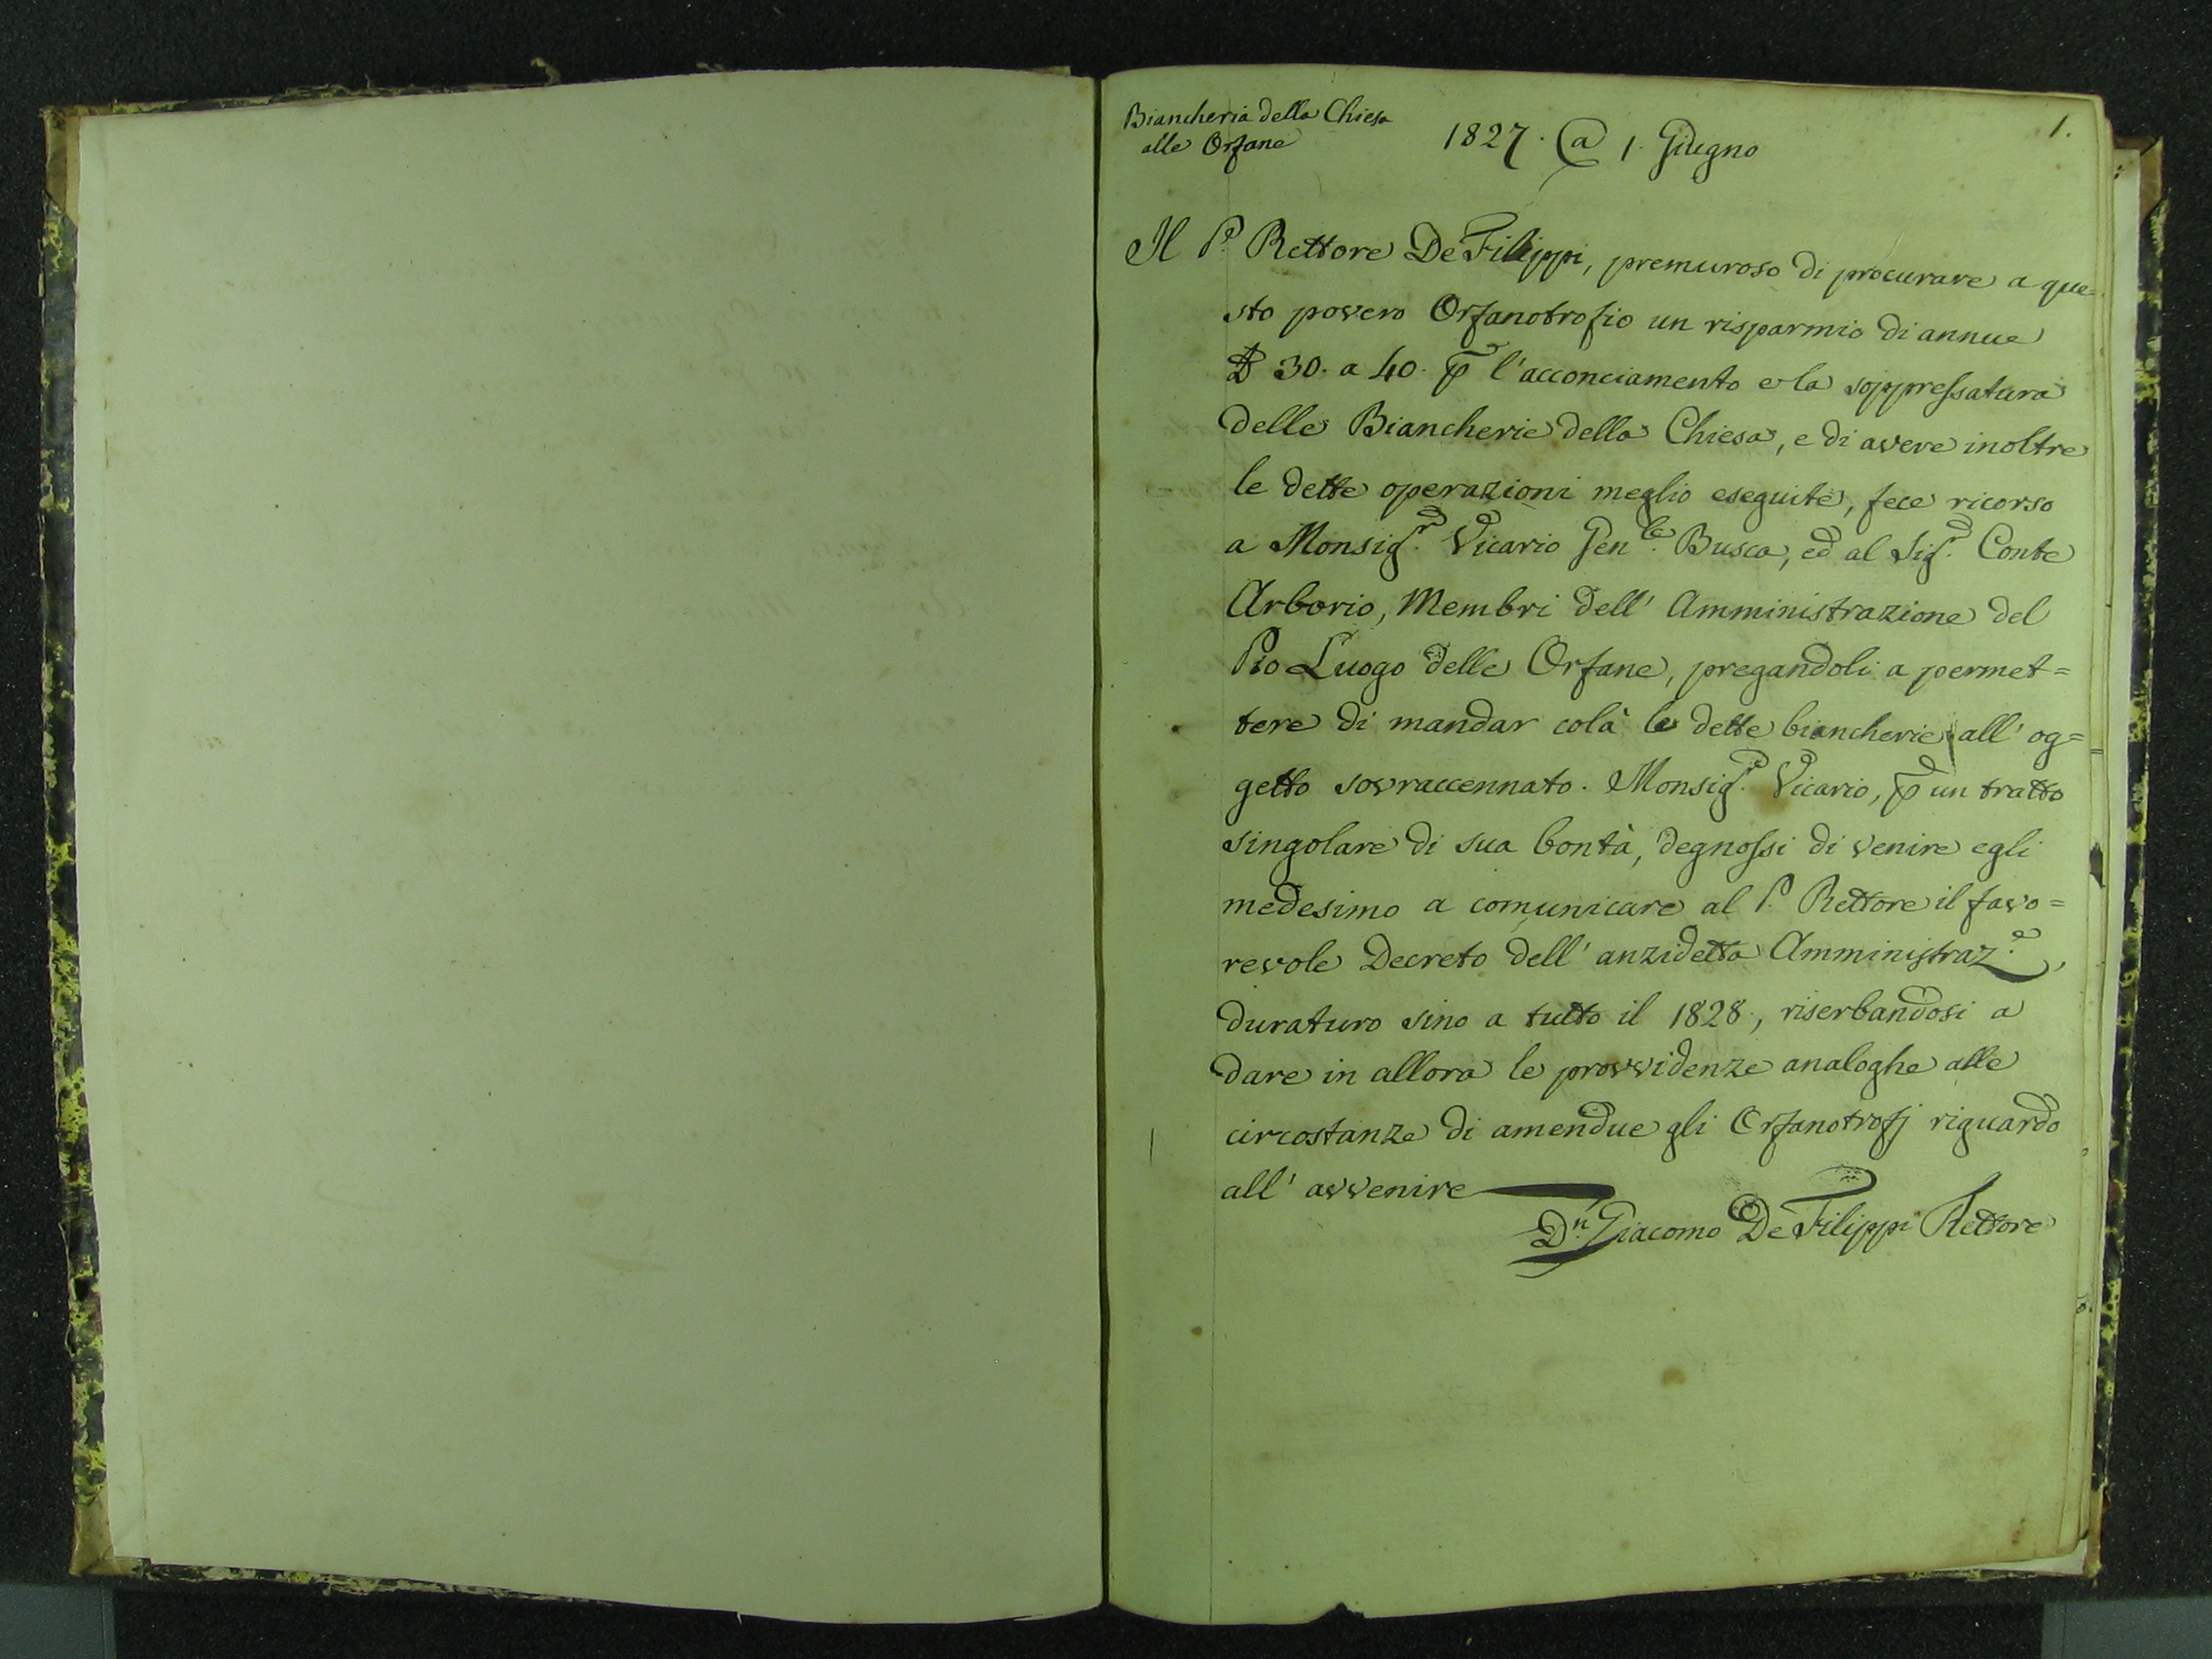 Biancheria della Chiesa
alle Orfane
1827. @ 1. Giugno
1.
Il P.e Rettore De Filippi, premuroso di procurare a que=
sto povero Orfanotrofio un risparmio di annue
30. a 40. p l'acconciamento e la soppressatura
delle Biancherie della Chiesa, e di avere inoltre
le dette operazioni meglio eseguite, fece ricorso
a Monsig.r Vicario Gen.le Busca, ed al Sig.r Conte
Arborio, Membri dell' Amministrazione del
Pio Luogo delle Orfane, pregandoli a permet=
tere di mandar colà le dette biancherie all' og=
getto sovraccennato. Monsig.r Vicario, p un tratto
singolare di sua bontà, degnossi di venire egli
medesimo a comunicare al P. Rettore il favo=
revole Decreto dell' anzidetta Amministraz.e,
duraturo sino a tutto il 1828., riserbandosi a
dare in allora le provvidenze analoghe alle
circostanze di amendue gli Orfanotrofj riguardo
all' avvenire
D.n Giacomo De Filippi Rettore